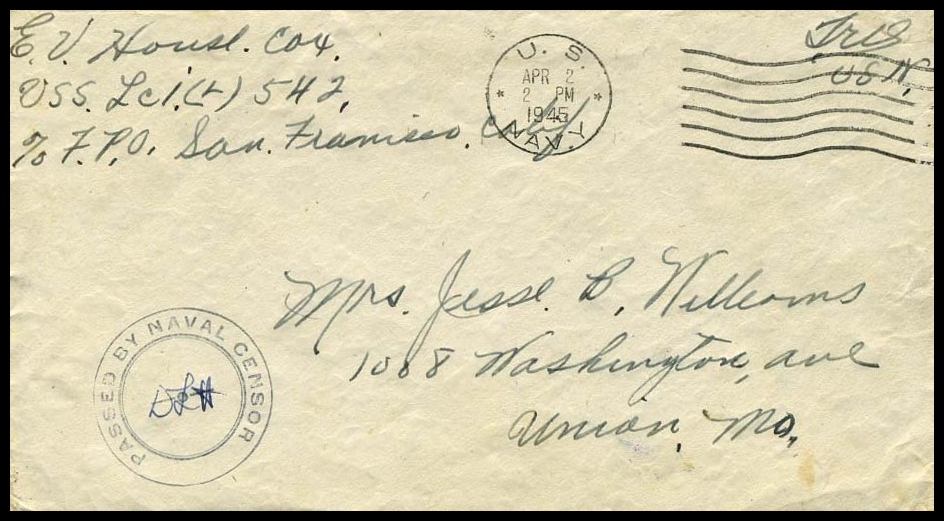 E. V. House. Cox.
USS. Lci.(L) 542,
℅ F.P.O. San. Francisco. Calif.
U. S.
APR 2
2 PM
1945
NAVY
Free
US N.
Mrs. Jesse. B. Williams
1088 Washington, ave
Union, Mo.
PASSED BY NAVAL CENSOR
DLH